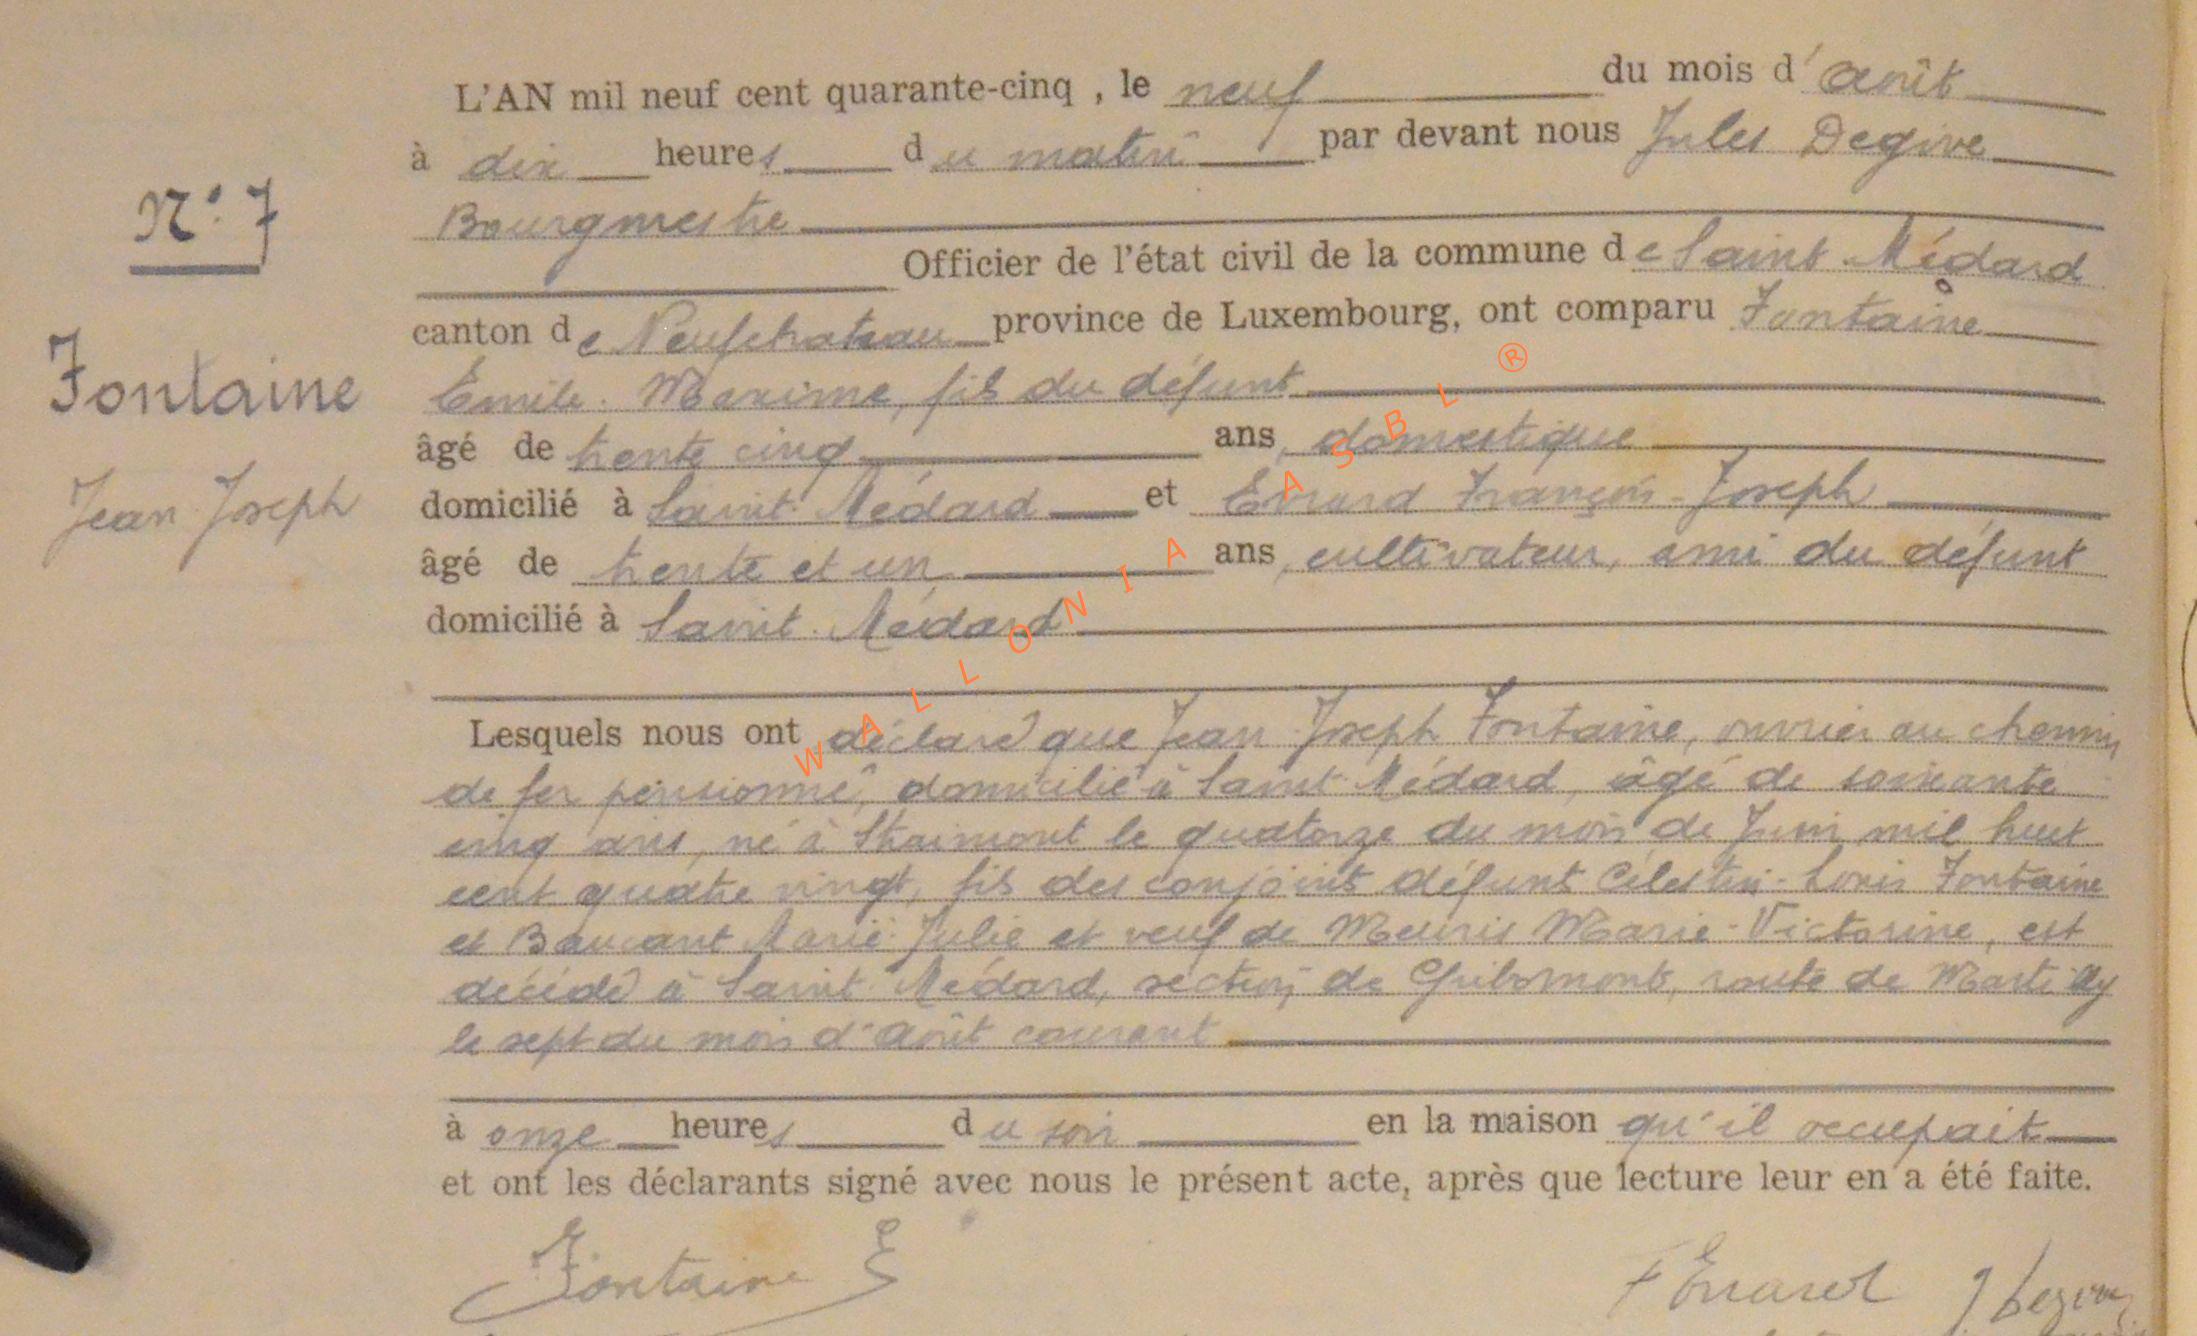 L'AN mil neuf cent quarante-cinq , le neuf du mois d'août
à dix heures du matin par devant nous Jules Degive
N° 7
Bourgmestre
Officier de l'état civil de la commune de Saint-Médard
canton de Neufchateau province de Luxembourg, ont comparu Fontaine
Fontaine
Emile-Maxime, fils du défunt
âgé de trente cinq ans, domestique
Jean-Joseph
domicilié à Saint-Médard et Evrard François-Joseph
âgé de trente et un ans, cultivateur, ami du défunt
domicilié à Saint-Médard
Lesquels nous ont déclaré que Jean-Joseph Fontaine, ouvrier au chemin
de fer pensionné, domicilié à Saint-Médard, âgé de soixante
cinq ans, né à Straimont le quatorze du mois de Juin mil huit
cent quatre vingt, fils des conjoints défunts Célestin-Louis Fontaine
et Baucant Marie-Julie et veuf de Meunis Marie-Victorine, est
décédé à Saint-Médard, section de Gribomont, route de Martilly
le sept du mois d'août courant
à onze heures du soir en la maison qu'il occupait
et ont les déclarants signé avec nous le présent acte, après que lecture leur en a été faite.
Fontaine E F Evrard J Degive
WALLONIA ASBL ®